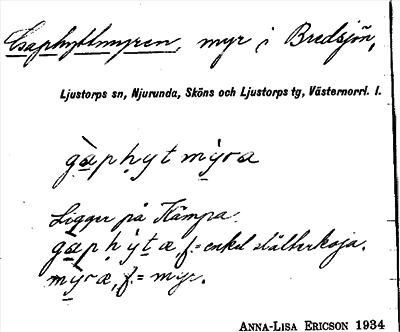 Gsaphyttmyren, myr i Bredsjön,
Ljustorps sn, Njurunda, Sköns och Ljustorps tg, Västernorrl. l.
gàphyt mýra
Ligger på Kämpa.
gàphytæ, f. = enkel slåtterkoja.
mýræ, f. = myr.
ANNA-LISA ERICSON 1934